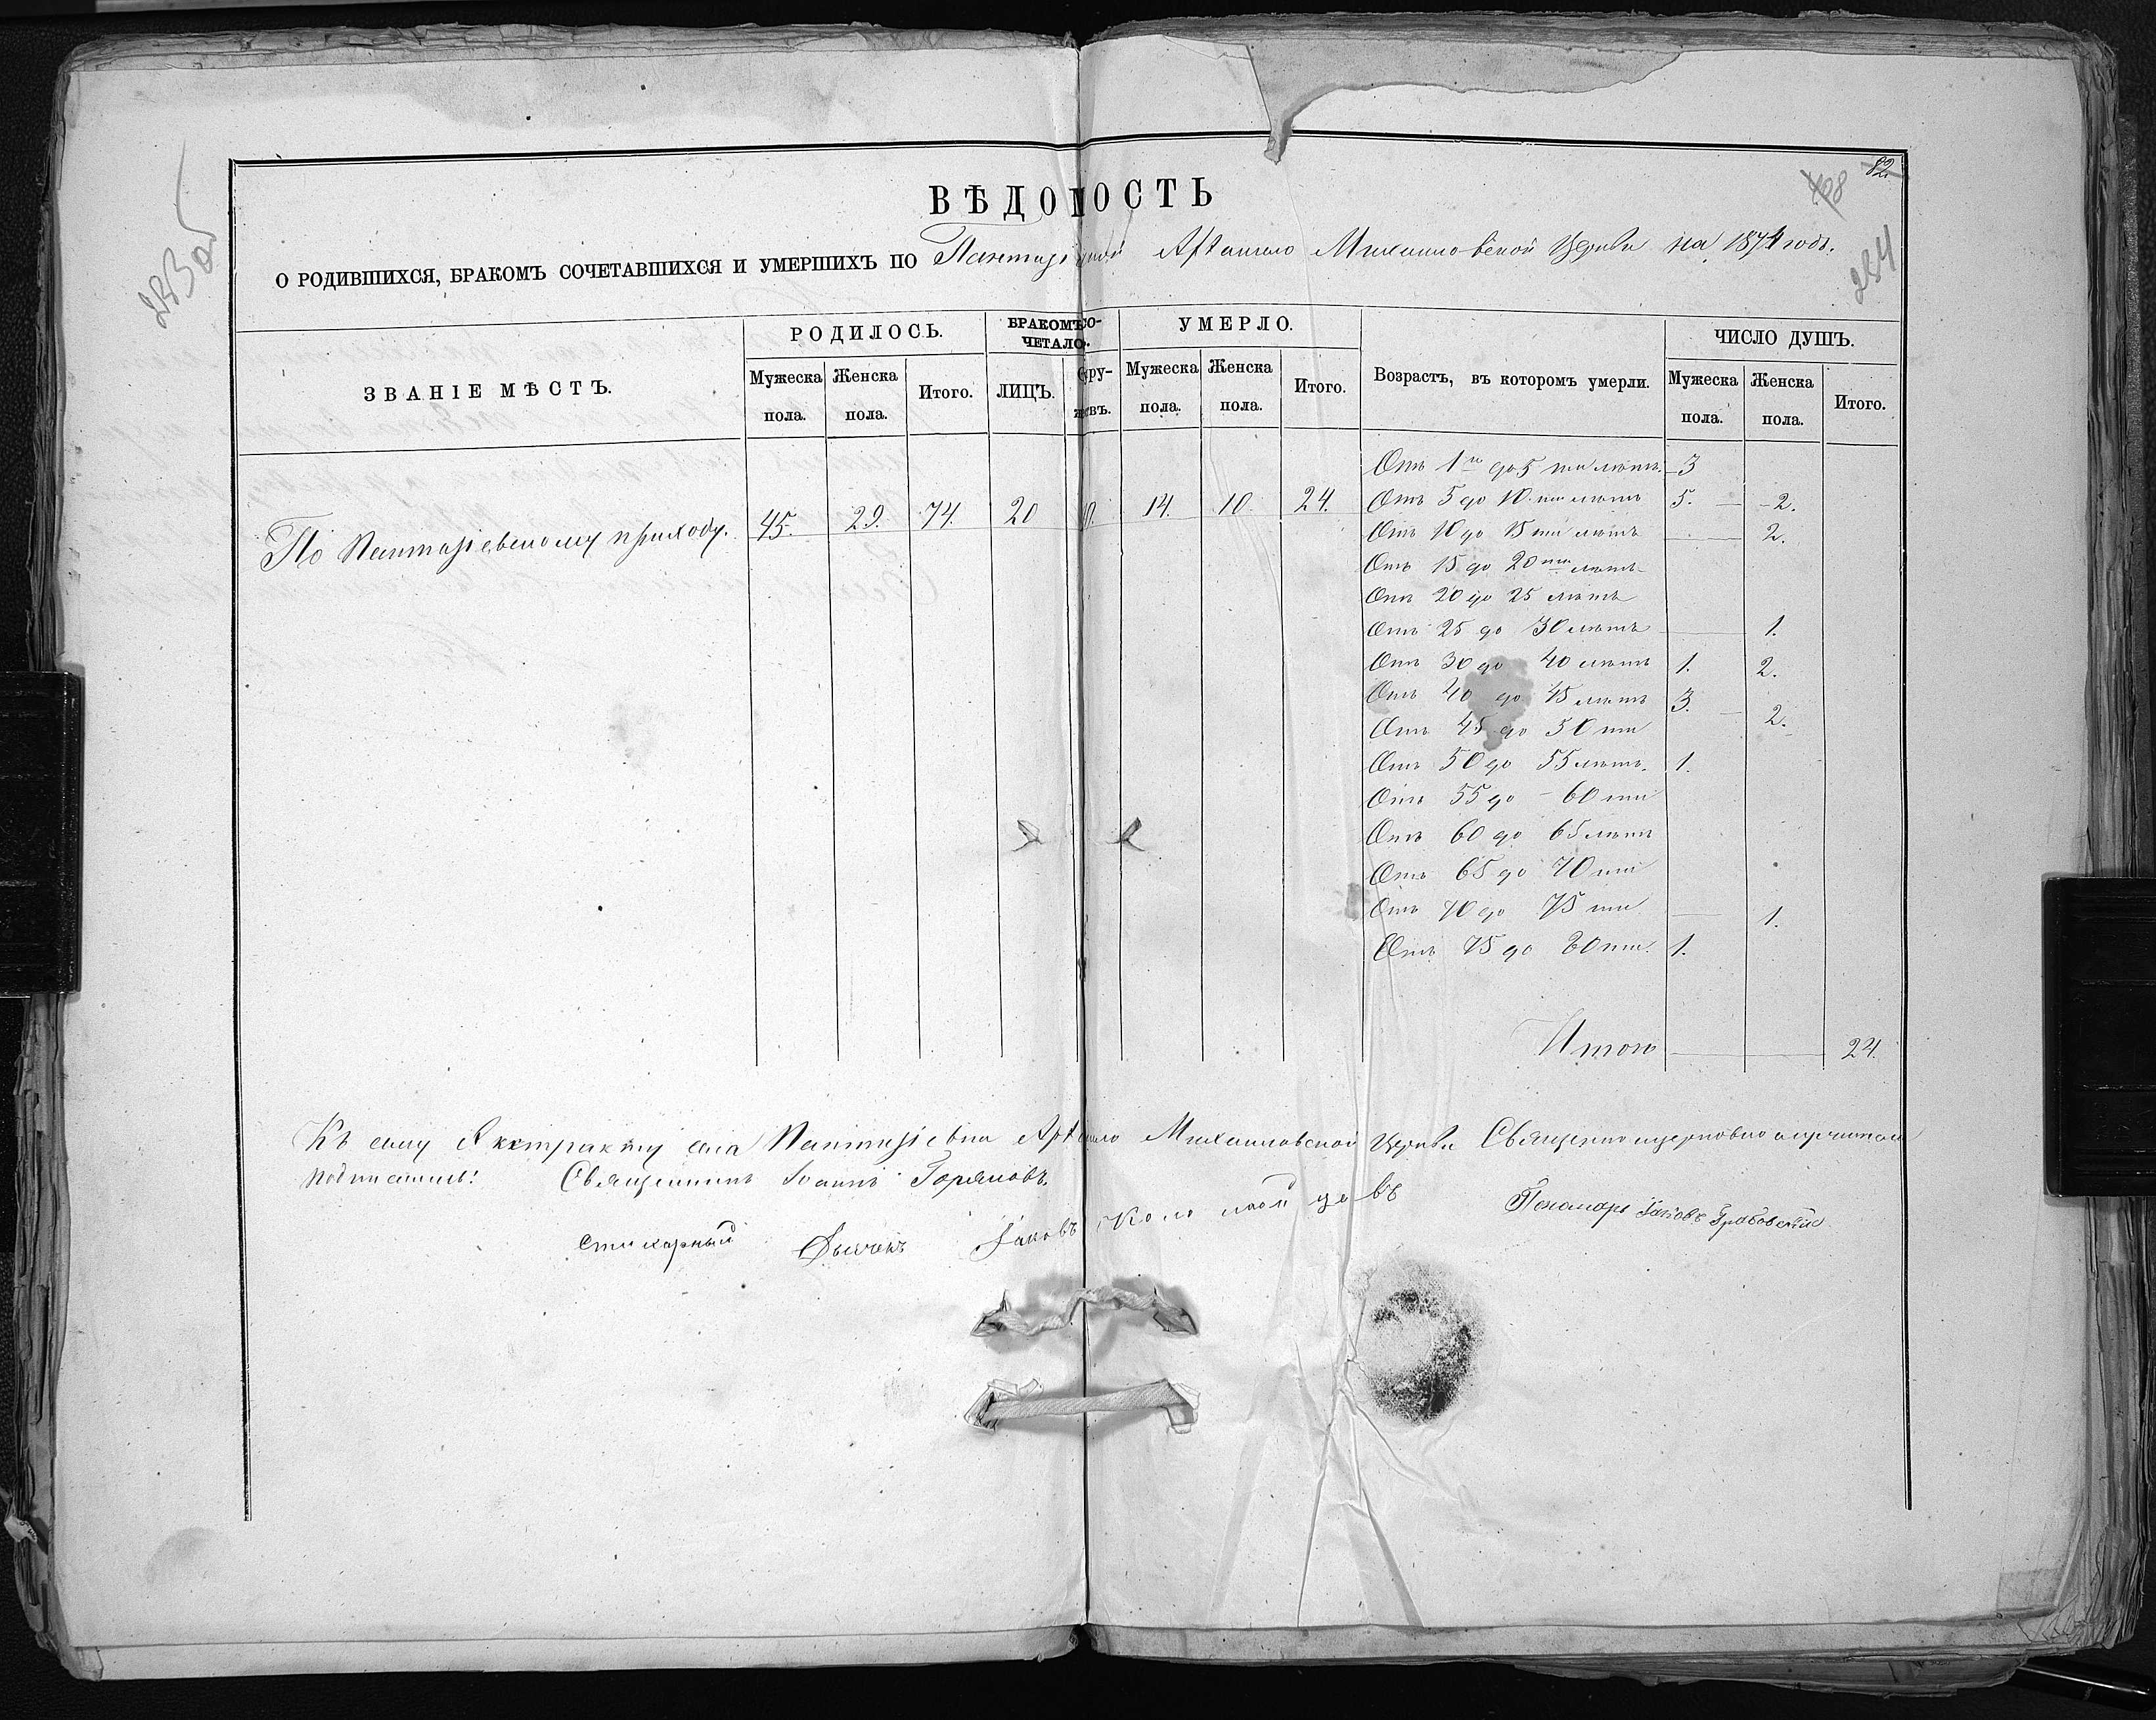 82.
408
283об
284
ВѢДОМОСТЬ
О РОДИВШИХСЯ, БРАКОМЪ СОЧЕТАВШИХСЯ И УМЕРШИХЪ ПО Архангело Михайловской Церкви на 1874 годъ.
ЗВАНІЕ МѢСТЪ. РОДИЛОСЬ. БРАКОМЪ СО-ЧЕТАЛО. УМЕРЛО. Возрастъ, въ которомъ умерли. ЧИСЛО ДУШЪ.
Мужеска пола. Женска пола. Итого. ЛИЦЪ. Мужеска пола. Женска пола. Итого. Мужеска пола. Женска пола. Итого.
По приходу. 45. 29. 74. 20 10. 14. 10. 24.
Отъ 1го до 5 ти лѣтъ. 3
Отъ 5 до 10 ти лѣтъ 5. 2.
Отъ 10 до 15 ти лѣтъ 2.
Отъ 15 до 20ти лѣтъ
Отъ 20 до 25 лѣтъ
Отъ 25 до 30 лѣтъ 1.
Отъ 30 до 40 лѣтъ 1. 2.
Отъ 40 до 45 лѣтъ 3.
Отъ 45 до 50 ти 2.
Отъ 50 до 55 лѣтъ. 1.
Отъ 55 до 60 ти
Отъ 60 до 65 лѣтъ
Отъ 65 до 70 ти
Отъ 70 до 75 ти 1.
Отъ 75 до 80 ти. 1.
Итого 24.
Къ сему Екстракту села Архангело Михайловской Церкви Священно церковно служители
подписались: Священникъ Іоаннъ Горяновъ.
Стихарный Дьячекъ Іаковъ Коломойцевъ
Пономарь Іаковъ Грабовскій